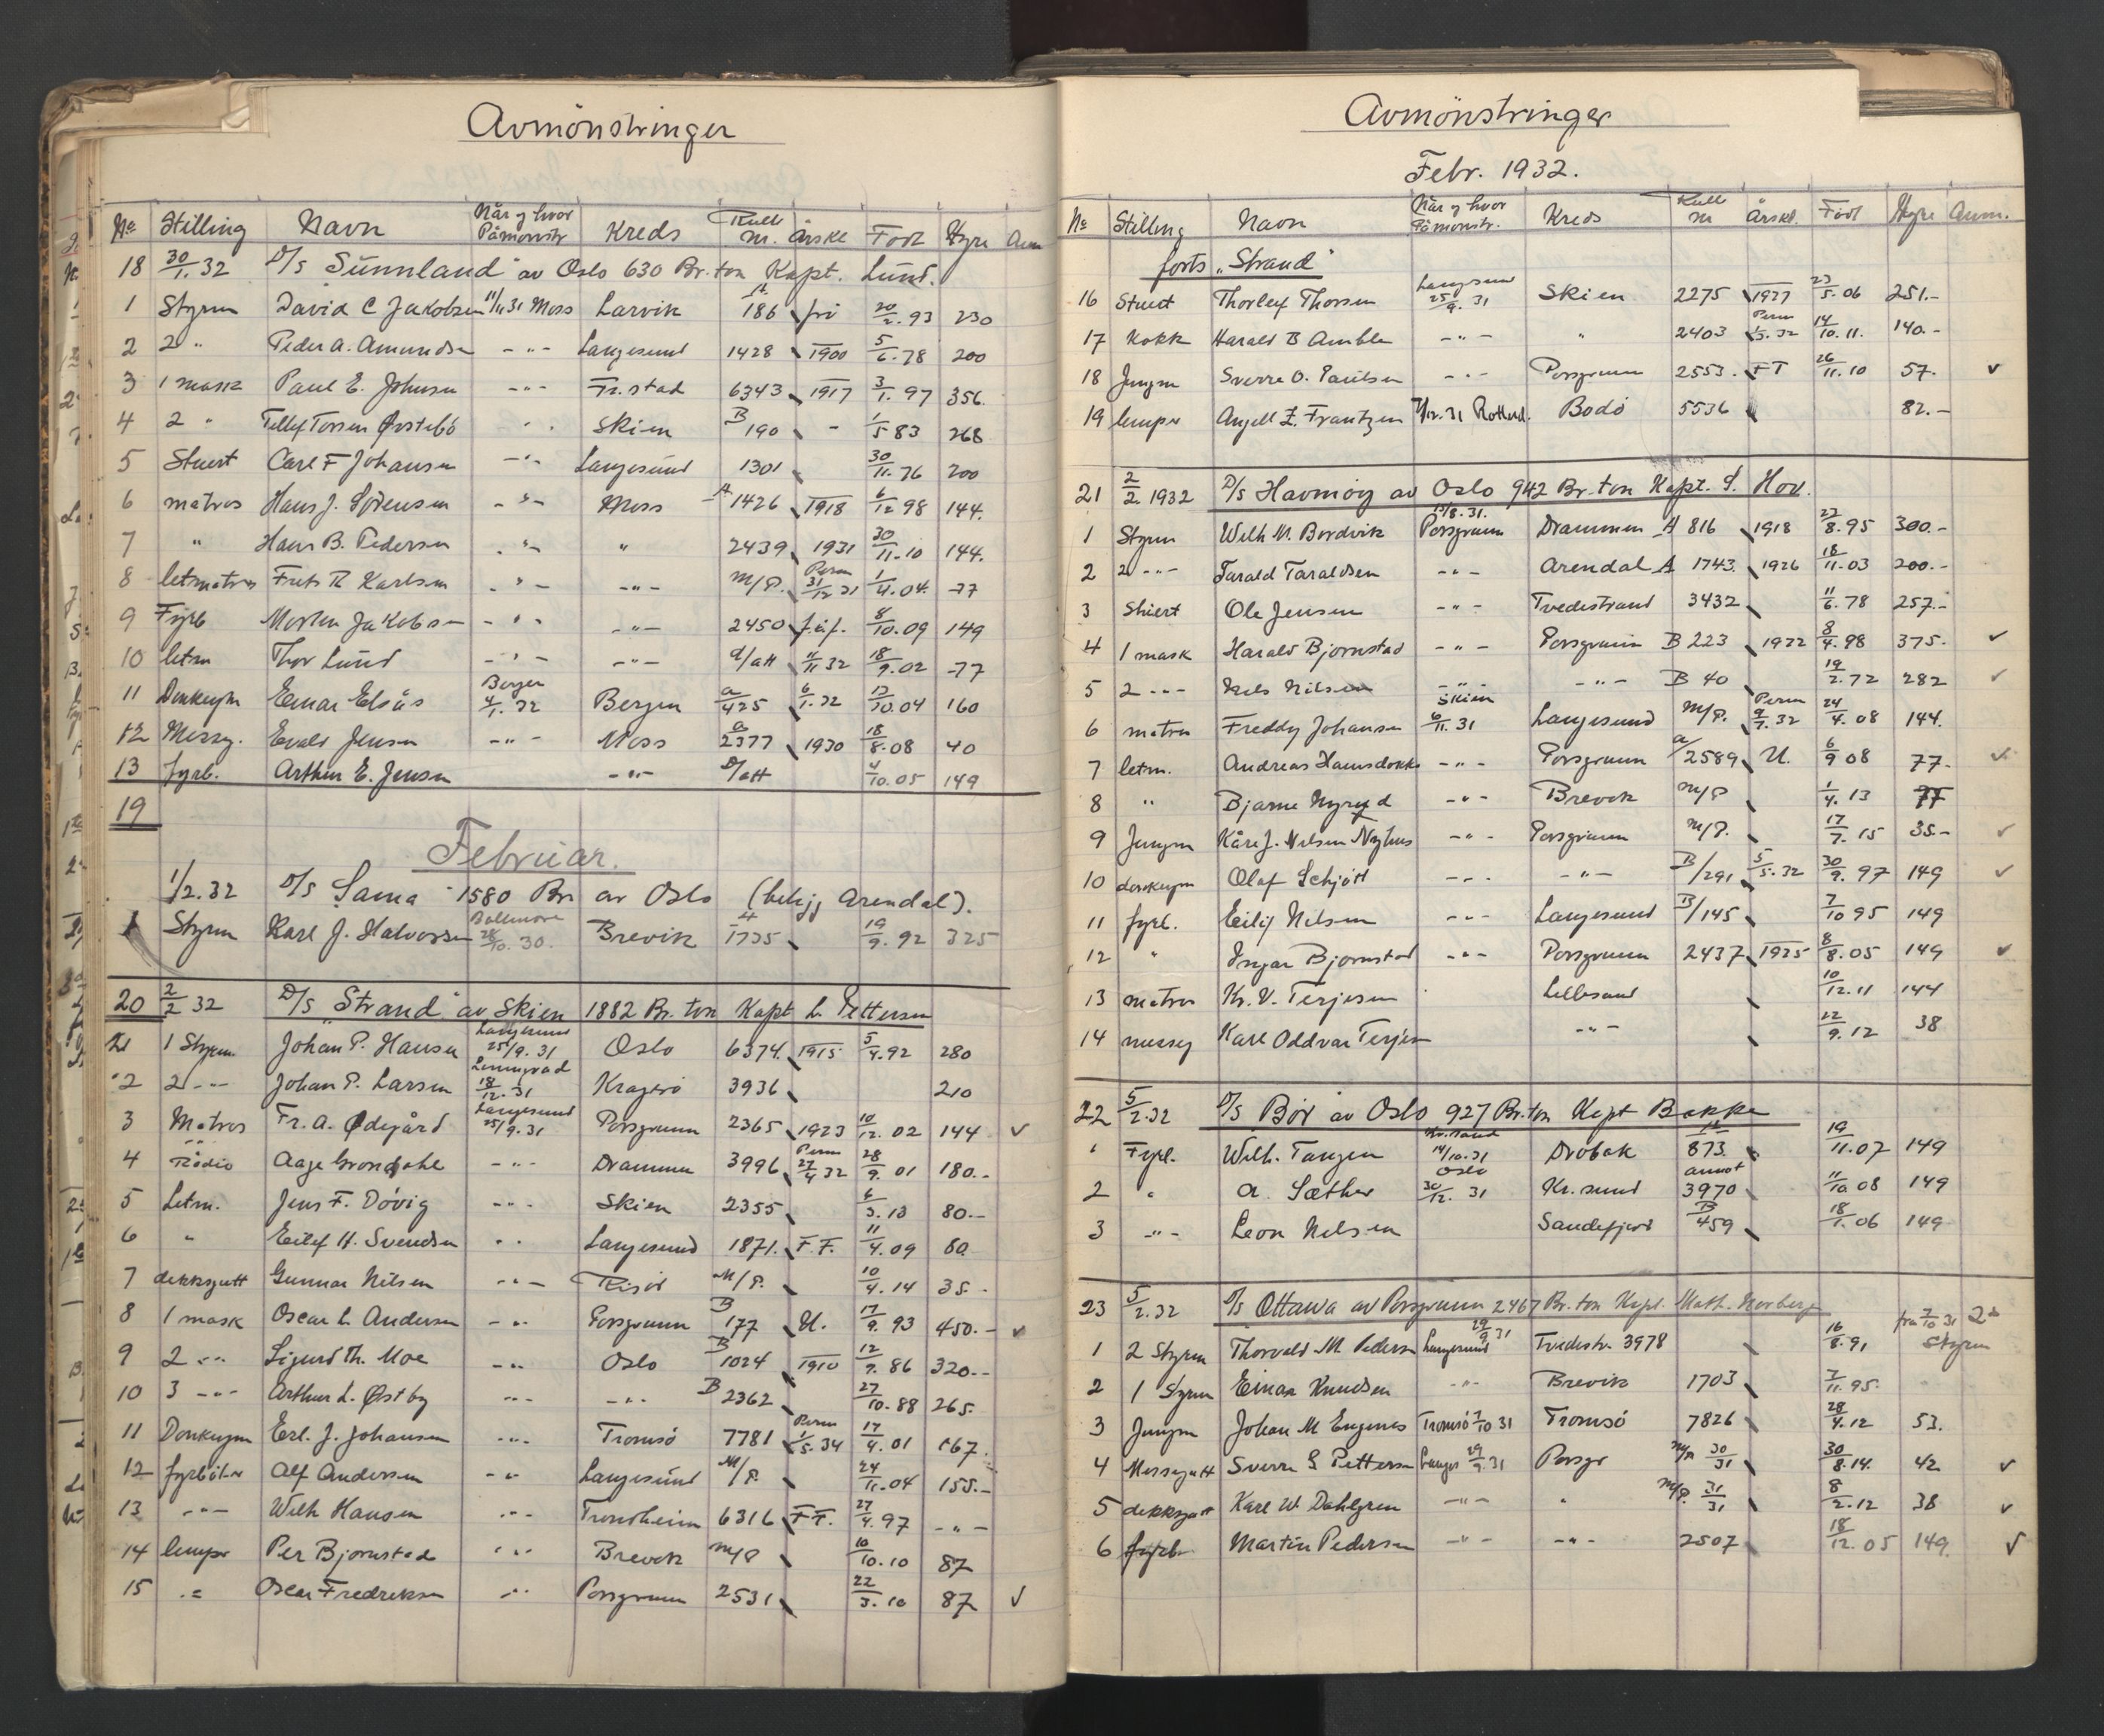 Avmönstringer
No Stilling Navn Når og hvor Påmönstr Kreds Rulle nr. Årskl Født Hyre Anm
18 30/1. 32 D/s "Sünnland" av Oslo 630 Br. ton Kapt. Lund.
1 Styrm David C Jakobsen 11/11 31 Moss Larvik A 186 fri 20/2. 93 230
2 2 " Peder A. Amundsen - " - Langesund 1428 1900 5/6. 78 200
3 1 mask Paul E. Johnsen - " - Fr. stad 6343 1917 3/1. 97 356.
4 2 " Tellef Tossen Østebö " Skien B 190 - 1/5 83 268
5 Stuert Carl F Johansen - " - Langesund 1301 30/11. 76 200
6 matros Hans J. Sörensen - " - Moss A 1426 1918 6/12 98 144.
7 " Hans B. Pedersen - " - " 2439 1931 30/11. 10 144.
8 letmatros Fritz R Karlsen - " - - " - M/P. Perm 31/12 31 1/11. 04. 77
9 Fyrb Morten Jakobsen - " - - " - 2450 f.f. 8/10. 09 149
10 letm Thor Lund - " - - " - a/att 11/11 32 18/9. 02 77
11 Donkeym Einar Elsås Bergen 4/1. 32 Bergen a 425 6/1. 32 13/10. 04 160
12 Messg. Evald Jensen - " - Moss a 2377 1930 18/8. 08 40
13 fyrb. Arthur E. Jensen - " - D/att 4/10. 05 149
19
Februar.
1/2. 32 D/s "Sama" 1580 Br. av Oslo (beligg Arendal).
1 Styrm Karl J. Halvorsen Baltimore 28/10. 30. Brevik A 1735 19/9. 92 325
20 2/2 32 D/s "Strand" av Skien 1882 Br. ton Kapt L. Pettersen
1 1 Styrm Johan P. Hansen Langesund 25/9. 31 Oslo 6374. 1915 5/4. 92 280
2 2 - " - Johan P. Larsen Leningrad 18/12. 31 Kragerö 3936 210
3 Matros Fr. A. Ødegård Langesund 25/9. 31 Porsgrunn 2365 1923 10/12. 02 144 ✓
4 Radio Aage Grondahl - " - Drammen 3996 Perm 27/4 32 28/9. 01 180. -
5 Letm. Jens F. Dövig - " - Skien 2355 6/3. 13 80. -
6 " Eilef H. Svendsen " Langesund 1871. F.F. 11/4. 09 80
7 dekksgutt Gunnar Nilsen - " - Risör M/P. 10/4. 14 35. -
8 1 mask Oscar L Andersen - " - Porsgrunn B 177 U. 17/9. 93 450. - ✓
9 2 - " - Sigurd Th. Moe - " - Oslo B 1024 1910 12/7. 86 320. -
10 3 - " - Arthur L. Østby - " - - " - B 2362 27/10. 88 265.
11 Donkeym Erl. J. Johansen - " - Tromsö 7781 Perm 1/5. 34 17/4. 01 167.
12 fyrböter Alf Andersen - " - Langesund M/P. 24/11. 04 155. -
13 - " - Wilh Hansen - " - Trondheim 6316 F.F. 27/4. 97 - " -
14 lemper Per Bjornstad - " - Brevik M/P 10/10. 10 87
15 " Oscar Fredriksen - " - Porsgrunn 2531 22/3. 10 87 ✓
Avmönstringer
Febr. 1932.
No Stilling Navn Når og hvor Påmönstr. Kreds Rulle nr Årskl. Født Hyre Anm.
forts "Strand"
16 Stuert Thorleif Thorsen Langesund 25/9. 31 Skien 2275 1927 23/5. 06 251. -
17 Kokk Harald B Amble - " - " 2403 Perm 1/5. 32 14/10. 11. 140. -
18 Jungm Sverre O. Paulsen - " - Porsgrunn 2553. FT 26/11. 10 57. ✓
19 lemper Angell Z. Frantzen 7/12. 31 Rotterd. Bodö 5536 82. -
21 2/2. 1932 D/s Havmöy av Oslo 942 Br. ton Kapt. S. Hov.
1 Styrm Wilh M. Bordvik 17/8. 31. Porsgrunn Drammen A 816 1918 22/8. 95 300. -
2 2 - " - Tarald Taraldsen - " - Arendal A 1743. 1926 18/11. 03 200. -
3 Stuert Ole Jensen - " - Tvedestrand 3432 11/6. 78 257. -
4 1 mask Harald Bjornstad - " - Porsgrunn B 223 1922 8/4. 98 375. ✓
5 2 - " - Nils Nilsen - " - - " - B 40 19/2. 72 282 ✓
6 matros Freddy Johansen Skien 6/11. 31 Langesund M/P. Perm 9/7. 32 24/4. 08 144.
7 letm. Andreas Hansdokk - " - Porsgrunn a/2589 U. 6/9 08 77. ✓
8 " Bjarne Nyryd - " - Brevik M/P 1/4. 13 77
9 Jungm Kåre J. Nilsen Nyhus - " - Porsgrunn M/P. 17/7. 15 35. - ✓
10 donkeym Olaf Schjött - " - - " - B/291 5/5. 32 30/9. 97 149 ✓
11 fyrb. Eilif Nilsen - " - Langesund B/145 7/10 95 149
12 " Ingar Bjornstad - " - Porsgrunn 2437 1925 8/8. 05 149 ✓
13 matros Kr. V. Terjesen Lillesand 10/12. 11 144
14 messg Karl Oddvar Terjesen - " - 22/9. 12 38
22 5/2. 32 D/s "Bör" av Oslo 927 Br. ton Kapt Bakke
1 Fyrb. Wilh. Tangen Kr. sand 14/10. 31 Dröbak A 873. 19/11. 07 149
2 " A. Sæther Oslo 30/12. 31 Kr. sund annot 3970 11/10. 08 149
3 - " - Leon Nilsen Sandefjord B 459 18/1. 06 149
23 5/2. 32 D/s Ottawa av Porsgrunn 2467 Br. ton Kapt. Math. Norberg
1 2 Styrm Thorvald M Pedersen Langesund 29/9 31 Tvedestr. 3978 16/8. 91 fra 7/10 31 2n Styrm
2 1 Styrm Einar Knudsen - " - Brevik 1703 7/11. 95.
3 Jungm Johan M Engenes Tromsö 7/10 31 Tromsö 7826 28/4. 12 53.
4 Messegutt Sverre S Pettersen Langes 29/9. 31 Porsgr M/P 30/31 30/8. 14. 42 ✓
5 dekksgutt Karl W. Dahlgren - " - " M/P. 31/31 8/2. 12 38 ✓
6 fyrb Martin Pedersen - " - - " - 2507 18/12. 05 149. ✓